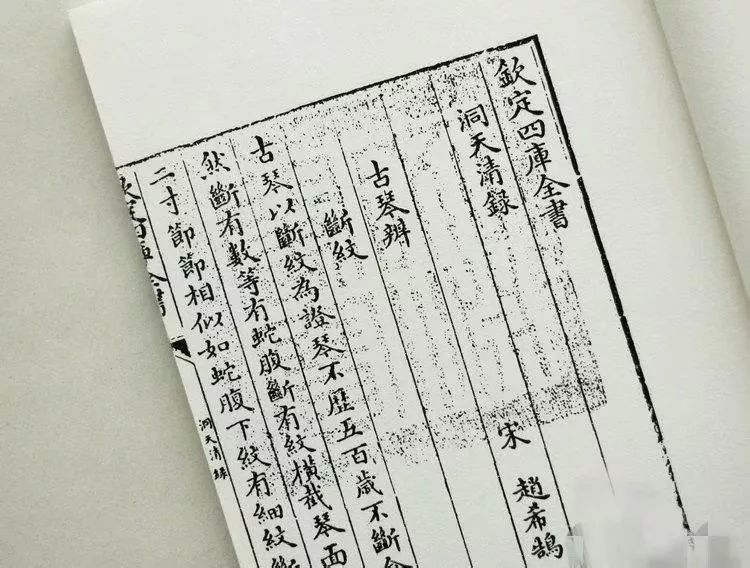 欽定四庫全書
洞天清錄
宋 趙希鵠
古琴辨
斷紋
古琴以斷紋為證琴不歴五百歲不斷
然斷有數等有蛇腹斷有紋橫截琴面
二寸節節相似如蛇腹下紋有細紋斷
洞天清錄